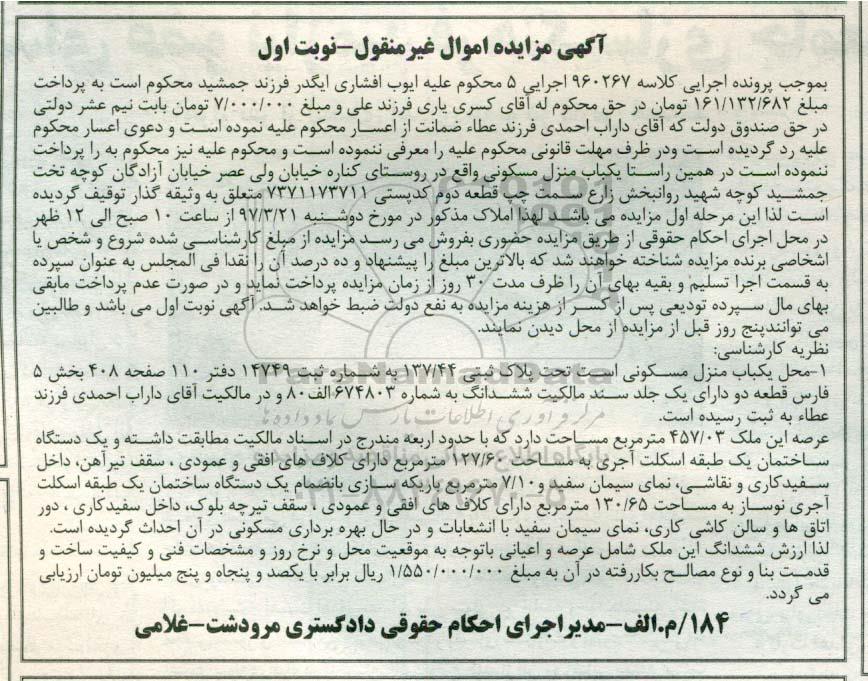 آگهی مزایده اموال غیرمنقول-نوبت اول
بموجب پرونده اجرایی کلاسه ۹۶۰۲۶۷ اجرایی ۵ محکوم علیه ایوب افشاری ایگدر فرزند جمشید محکوم است به پرداخت
مبلغ ۱۶۱/۱۳۲/۶۸۲ تومان در حق محکوم له آقای کسری یاری فرزند علی و مبلغ ۷/۰۰۰/۰۰۰ تومان بابت نیم عشر دولتی
در حق صندوق دولت که آقای داراب احمدی فرزند عطاء ضمانت از اعسار محکوم علیه نموده است و دعوی اعسار محکوم
علیه رد گردیده است ودر ظرف مهلت قانونی محکوم علیه را معرفی ننموده است و محکوم علیه نیز محکوم به را پرداخت
ننموده است در همین راستا یکباب منزل مسکونی واقع در روستای کناره خیابان ولی عصر خیابان آزادگان کوچه تخت
جمشید کوچه شهید روانبخش زارع سمت چپ قطعه دوم کدپستی ۷۳۷۱۱۷۳۷۱۱ متعلق به وثیقه گذار توقیف گردیده
است لذا این مرحله اول مزایده می باشد لهذا املاک مذکور در مورخ دوشنبه ۹۷/۳/۲۱ از ساعت ۱۰ صبح الی ۱۲ ظهر
در محل اجرای احکام حقوقی از طریق مزایده حضوری بفروش می رسد مزایده از مبلغ کارشناسی شده شروع و شخص یا
اشخاصی برنده مزایده شناخته خواهند شد که بالاترین مبلغ را پیشنهاد و ده درصد آن را نقدا فی المجلس به عنوان سپرده
به قسمت اجرا تسلیم و بقیه بهای آن را ظرف مدت ۳۰ روز از زمان مزایده پرداخت نماید و در صورت عدم پرداخت مابقی
بهای مال سپرده تودیعی پس از کسر از هزینه مزایده به نفع دولت ضبط خواهد شد. آگهی نوبت اول می باشد و طالبین
می توانندپنج روز قبل از مزایده از محل دیدن نمایند.
نظریه کارشناسی:
۱-محل یکباب منزل مسکونی است تحت پلاک ثبتی ۱۳۷/۴۴ به شماره ثبت ۱۴۷۴۹ دفتر ۱۱۰ صفحه ۴۰۸ بخش ۵
فارس قطعه دو دارای یک جلد سند مالکیت ششدانگ به شماره ۶۷۴۸۰۳الف۸۰ و در مالکیت آقای داراب احمدی فرزند
عطاء به ثبت رسیده است.
عرصه این ملک ۴۵۷/۰۳ مترمربع مساحت دارد که با حدود اربعه مندرج در اسناد مالکیت مطابقت داشته و یک دستگاه
ساختمان یک طبقه اسکلت آجری به مساحت ۱۲۷/۶۰ مترمربع دارای کلاف های افقی و عمودی ، سقف تیرآهن، داخل
سفیدکاری و نقاشی، نمای سیمان سفید و ۷/۱۰ مترمربع بزیکه سازی بانضمام یک دستگاه ساختمان یک طبقه اسکلت
آجری نوساز به مساحت ۱۳۰/۶۵ مترمربع دارای کلاف های افقی و عمودی ، سقف تیرچه بلوک، داخل سفیدکاری ، دور
اتاق ها و سالن کاشی کاری، نمای سیمان سفید با انشعابات و در حال بهره برداری مسکونی در آن احداث گردیده است.
لذا ارزش ششدانگ این ملک شامل عرصه و اعیانی باتوجه به موقعیت محل و نرخ روز و مشخصات فنی و کیفیت ساخت و
قدمت بنا و نوع مصالح بکاررفته در آن به مبلغ ۱/۵۵۰/۰۰۰/۰۰۰ ریال برابر با یکصد و پنجاه و پنج میلیون تومان ارزیابی
می گردد.
۱۸۴/م.الف-مدیراجرای احکام حقوقی دادگستری مرودشت-غلامی
ParsNamadData
مرکز فرآوری اطلاعات پارس نماد داده ها
۰۲۱-۸۸۳۴۹۶۷۰-۵